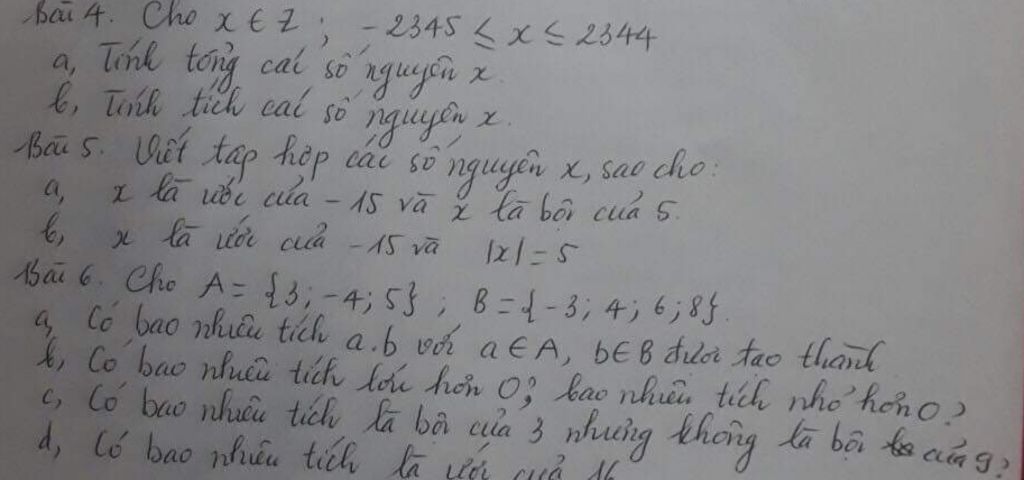 Bài 4. Cho x ∈ Z ; -2345 ≤ x ≤ 2344
a, Tính tổng các số nguyên x.
b, Tính tích các số nguyên x.
Bài 5. Viết tập hợp các số nguyên x, sao cho:
a, x là ước của -15 và x là bội của 5.
b, x là ước của -15 và |x| = 5
Bài 6. Cho A = {3; -4; 5} ; B = {-3; 4; 6; 8}.
a, Có bao nhiêu tích a.b với a ∈ A, b ∈ B được tạo thành
b, Có bao nhiêu tích lớn hơn 0; bao nhiêu tích nhỏ hơn 0?
c, Có bao nhiêu tích là bội của 3 nhưng không là bội của 9?
d, Có bao nhiêu tích là ước của 16